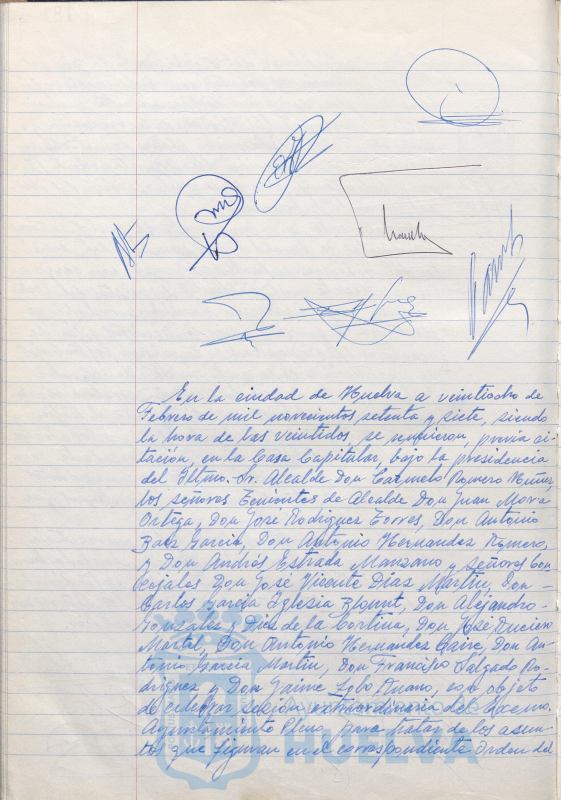 En la ciudad de Huelva a veintiocho de
Febrero de mil novecientos setenta y siete, siendo
la hora de las veintidos, se reunieron, previa ci-
tación, en la Casa Capitular, bajo la presidencia
del Iltmo. Sr. Alcalde Don Carmelo Romero Núñez,
los señores Tenientes de Alcalde Don Juan Mora
Ortega, Don José Rodriguez Torres, Don Antonio
Baez Garcia, Don Antonio Hernandez Romero,
y Don Andrés Estrada Manzano y señores Con
cejales Don José Vicente Diaz Martin, Don -
Carlos Garcia Iglesia Blount, Don Alejandro -
Gonzalez Diez de la Cortina, Don José
Martel, Don Antonio Hernandez Caire, Don An-
tonio Garcia Martin, Don Francisco Salgado Ro-
driguez y Don Jaime Lobo Ruano, con objeto
de celebrar sesión extraordinaria del Excmo.
Ayuntamiento Pleno para tratar de los asun-
tos que figuran en el correspondiente Orden del
HUELVA